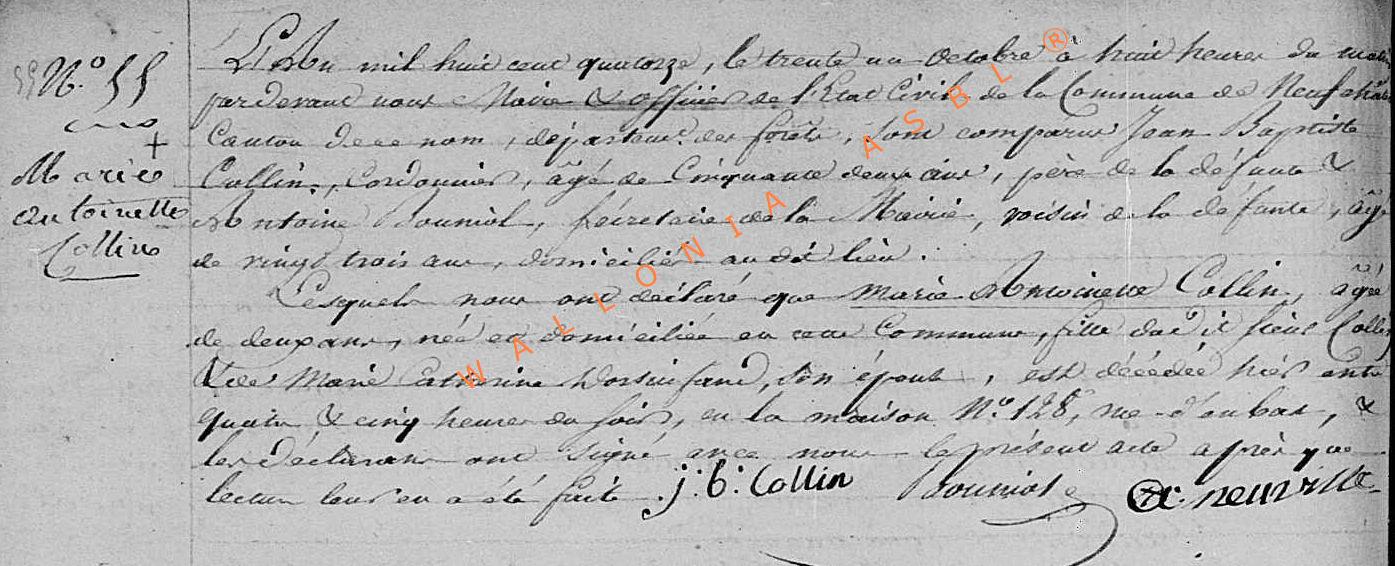 55 N.° 55
Marie
antoinette
Collin
L'An mil huit cent quatorze, le trente un octobre à huit heures du matin
pardevant nous Maire & officier de l'Etat Civil de la Commune de Neufchât
Canton de ce nom, départemt. des forêts, sont comparus Jean Baptiste
Collin, Cordonnier, âgé de Cinquante deux ans, père de la défunte &
Antoine Pouniol, sécretaire de la Mairie, voisin de la défunte, âgé
de vingt trois ans, domiciliés au dit lieu.
Lesquels nous ont déclaré que Marie Antoinette Collin, âgée
de deux ans, née et domiciliée en cette Commune, fille du dit sieur Collin
& de Marie Catherine son épouse, est décédée hier entre
quatre & cinq heures du soir, en la maison N.° 128, rue d'en bas, &
les déclarans ont signé avec nous le présent acte après que
lecture leur en a été faite. j: b: Collin Pouniol neuville
WALLONIA ASBL ®